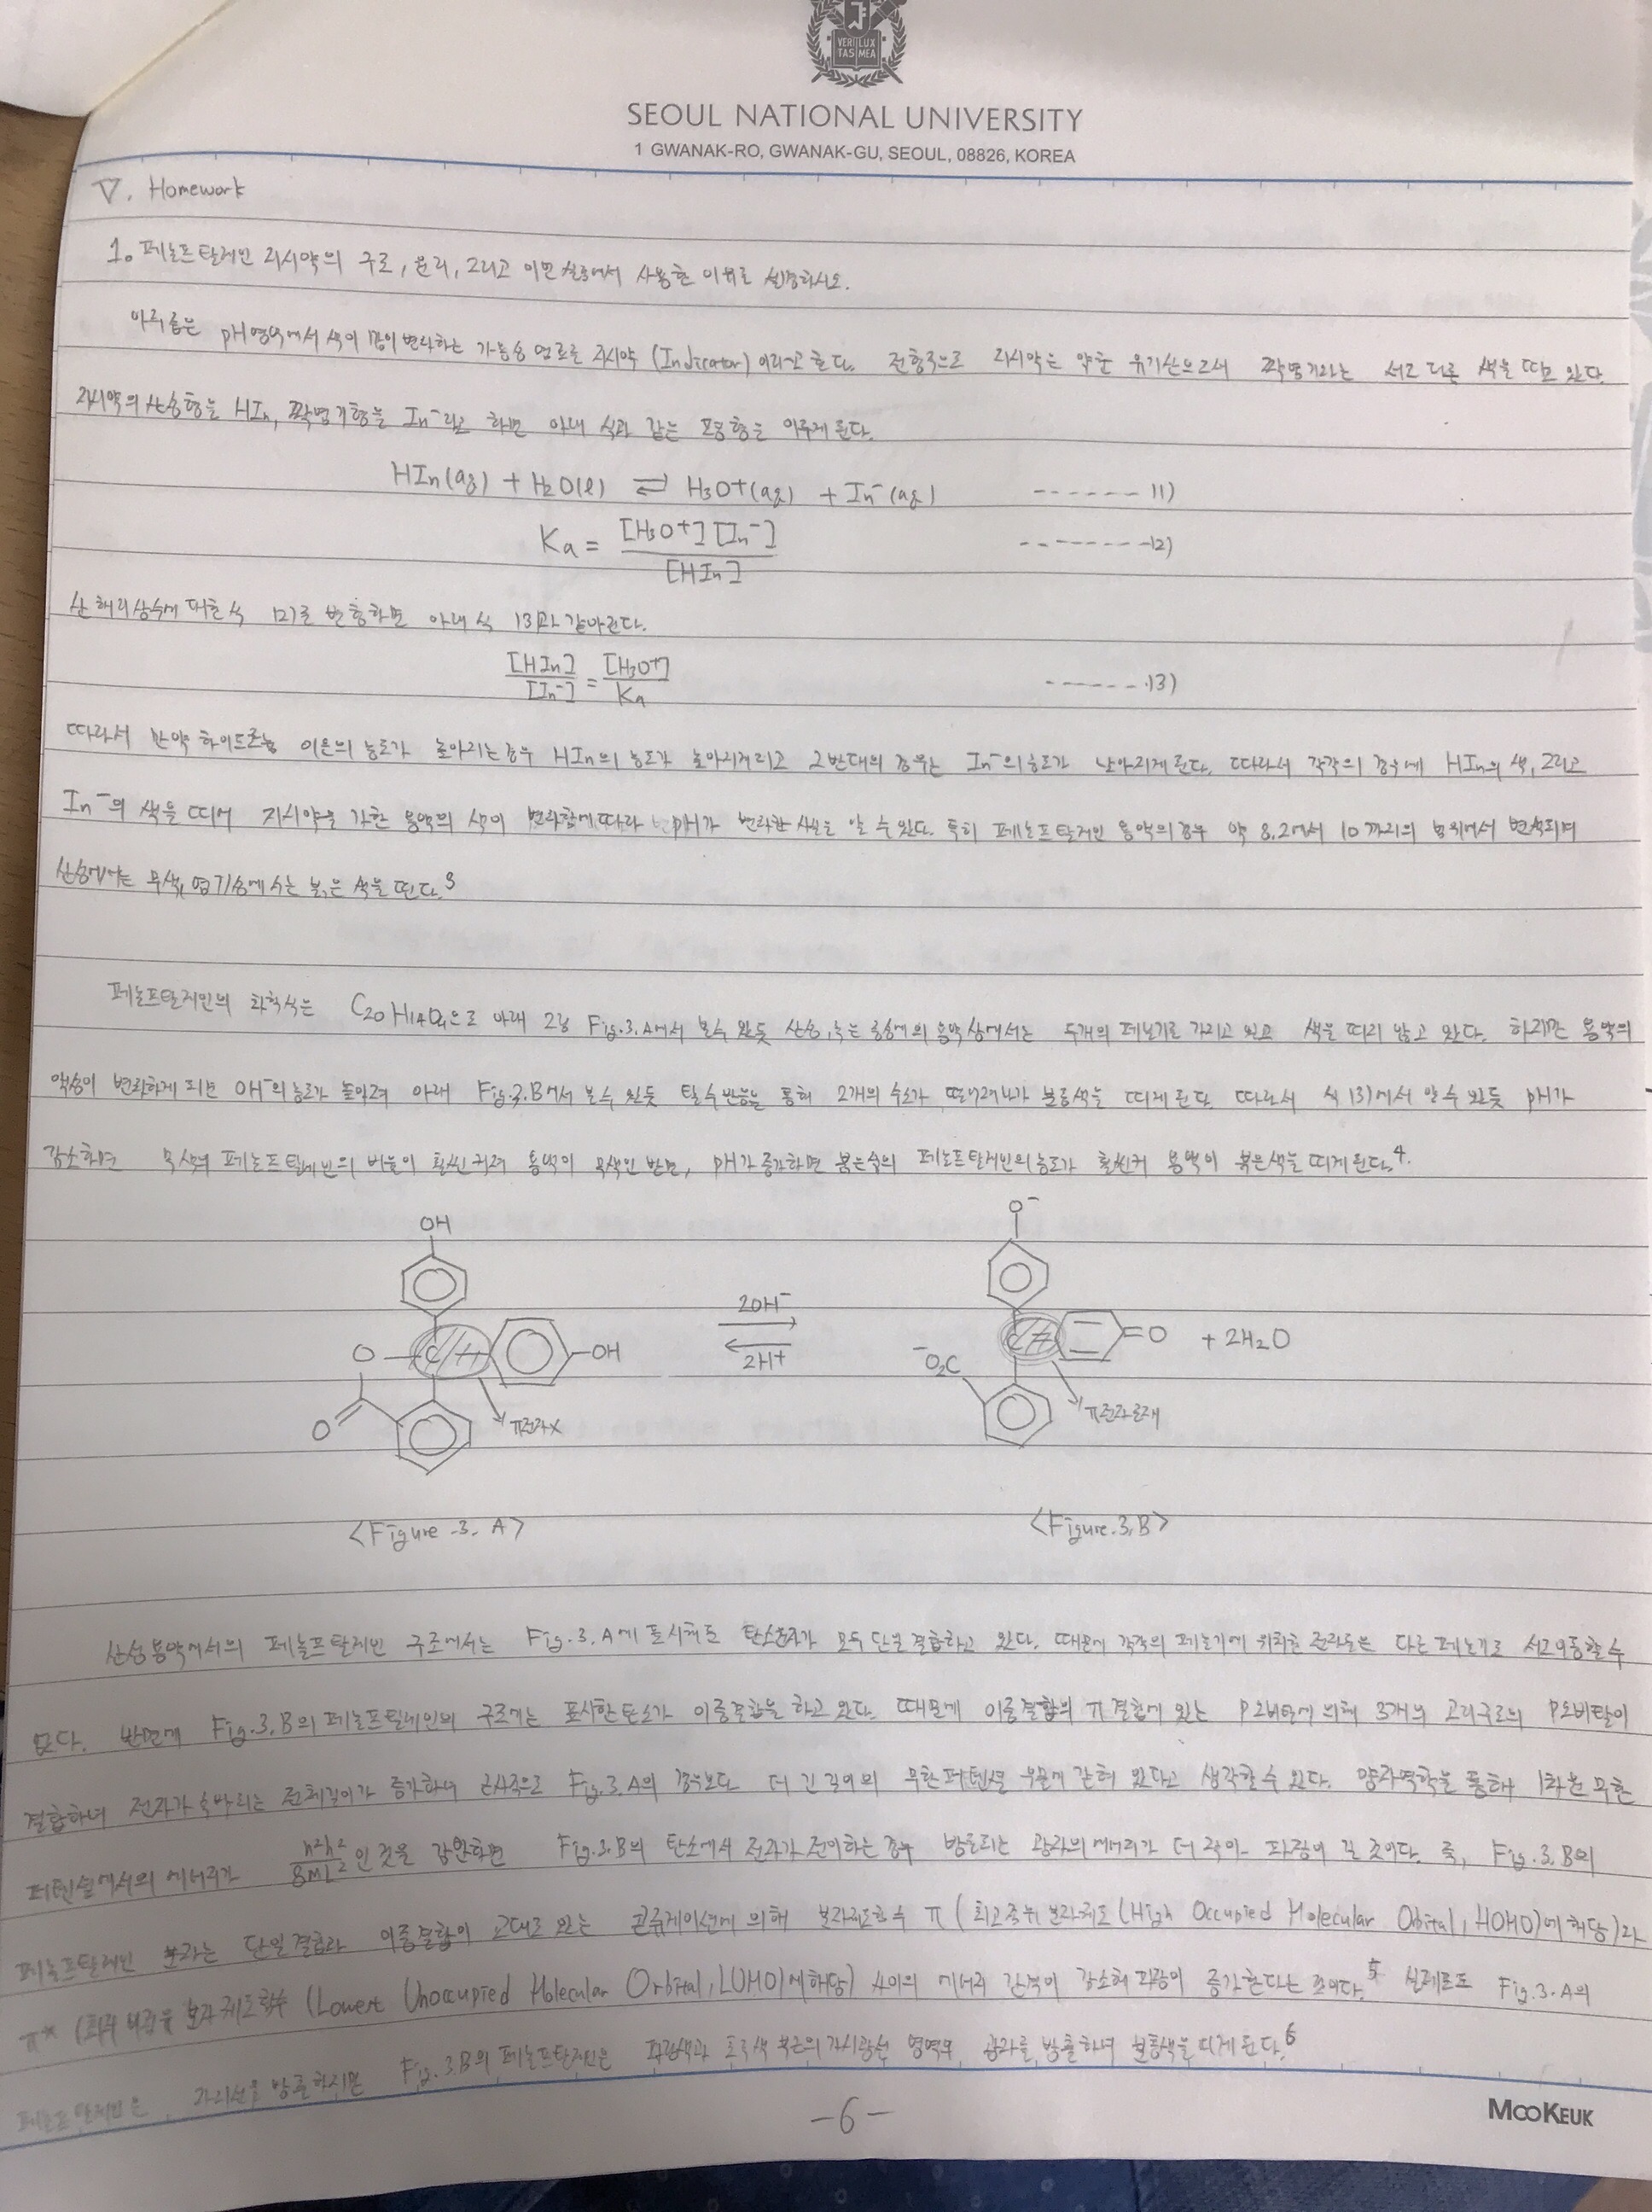 VERI LUX
TAS MEA
SEOUL NATIONAL UNIVERSITY
1 GWANAK-RO, GWANAK-GU, SEOUL, 08826, KOREA
V. Homework
1. 페놀프탈레인 지시약의 구조, 원리, 그리고 이번 실험에서 사용한 이유를 설명하시오.
아주 좁은 pH영역에서 색이 많이 변화하는 가용성 염료를 지시약 (Indicator) 이라고 한다. 전형적으로 지시약은 약한 유기산으로서 짝염기와는 서로 다른 색을 띠고 있다.
지시약의 산성형을 HIn, 짝염기형을 In⁻라고 하면 아래 식과 같은 평형을 이루게 된다.
HIn(aq) + H₂O(l) ⇌ H₃O+(aq) + In⁻(aq) ------- 11)
Ka = [H₃O+][In⁻] / [HIn] -------- 12)
산 해리상수에 대한 식 12)를 변형하면 아래 식 13)과 같아진다.
[HIn] / [In⁻] = [H₃O+] / Ka ------- 13)
따라서 만약 하이드로늄 이온의 농도가 높아지는 경우 HIn의 농도가 높아지게되고 그 반대의 경우는 In⁻의 농도가 낮아지게 된다. 따라서 각각의 경우에 HIn의 색, 그리고
In⁻의 색을 띠어 지시약을 가한 용액의 색이 변화함에 따라 pH가 변화한 사실을 알 수 있다. 특히 페놀프탈레인 용액의 경우 약 8.2에서 10까지의 범위에서 변색되며
산성에서는 무색, 염기성에서는 붉은 색을 띤다.³
페놀프탈레인의 화학식은 C₂₀H₁₄O₄으로 아래 그림 Fig.3.A에서 볼 수 있듯 산성, 혹은 중성의 용액상에서는 두개의 페놀기를 가지고 있고 색을 띠지 않고 있다. 하지만 용액의
액성이 변화하게 되면 OH⁻의 농도가 높아져 아래 Fig.3.B에서 볼 수 있듯 탈수반응을 통해 2개의 수소가 떨어져나가 분홍색을 띠게 된다. 따라서 식 13)에서 알 수 있듯 pH가
감소하면 무색의 페놀프탈레인의 비율이 훨씬 커져 용액이 무색인 반면, pH가 증가하면 붉은색의 페놀프탈레인의 농도가 훨씬 커 용액이 붉은색을 띠게 된다.⁴
OH
O
C
OH
O
π전자x
2OH⁻
2H+
O⁻
C
=O
⁻O₂C
+ 2H₂O
π전자존재
<Figure.3.A>
<Figure.3.B>
산성용액에서의 페놀프탈레인 구조에서는 Fig.3.A에 표시해둔 탄소원자가 모두 단일 결합하고 있다. 때문에 각각의 페놀기에 위치한 전자들은 다른 페놀기로 서로 이동할 수
없다. 반면에 Fig.3.B의 페놀프탈레인의 구조에는 표시한 탄소가 이중결합을 하고 있다. 때문에 이중결합의 π결합에 있는 P오비탈에 의해 3개의 고리구조의 P오비탈이
결합하여 전자가 속박되는 전체길이가 증가하여 근사적으로 Fig.3.A의 경우보다 더 긴 길이의 무한 퍼텐셜 우물에 갇혀 있다고 생각할 수 있다. 양자역학을 통해 1차원 무한
퍼텐셜에서의 에너지가 n²h² / 8ml² 인 것을 감안하면 Fig.3.B의 탄소에서 전자가 전이하는 경우 방출되는 광자의 에너지가 더 작아 파장이 길 것이다. 즉, Fig.3.B의
페놀프탈레인 분자는 단일결합과 이중결합이 교대로 있는 콘쥬게이션에 의해 분자궤도함수 π (최고 준위 분자궤도 (High Occupied Molecular Orbital, HOMO)에 해당)과
π* (분자궤도함수 (Lowest Unoccupied Molecular Orbital, LUMO)에 해당) 사이의 에너지 간격이 감소해 파장이 증가한다는 것이다.⁵ 실제로도 Fig.3.A의
페놀프탈레인은 자외선을 방출하지만 Fig.3.B의 페놀프탈레인은 파란색과 초록색 부근의 가시광선 영역의 광자를 방출하여 분홍색을 띠게 된다.⁶
-6-
MOOKEUK